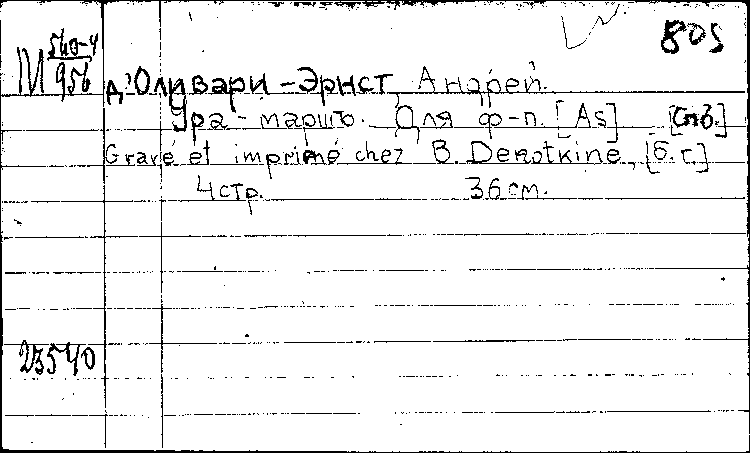 805
М 540-4
956
д'Оливари-Эрнст, Андрей.
Ура-маршъ. Для ф-п. [As] [Спб.]
Gravé et imprimé chez B. Derotkine, [б.г.]
4 стр. 36 см.
23540